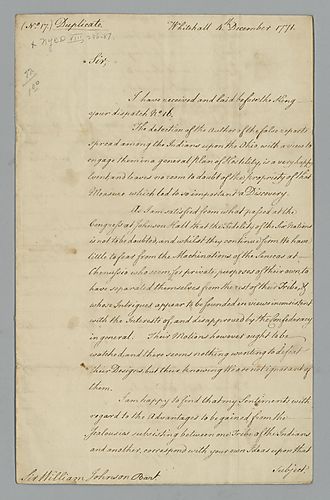 (No. 17.) Duplicate.
Whitehall 4th December 1771.
Sir,
I have received and laid before the King
your dispatch No. 16.
The detection of the Author of the false reports
spread among the Indians upon the Ohio with a view to
engage them in a general plan of Hostility, is a very happy
Event and leaves no room to doubt of the propriety of that
Measure which led to so important a Discovery.
As I am satisfied from what passed at the
Congress at Johnson Hall that the Fidelity of the Six Nations
is not to be doubted, and whilst they continue firm We have
little to fear from the Machinations of the Senecas at
Chenussio who seem for private purposes of their own to
have separated themselves from the rest of their Tribe, &
whose Intrigues appear to be founded in views inconsistent
with the Interests of, and disapproved by the Confederacy
in general. Their Motions however ought to be
watched and there seems nothing wanting to defeat
their Designs, but their knowing We are not ignorant of
them.
I am happy to find that my Sentiments with
regard to the Advantages to be gained from the
Jealousies subsisting between one Tribe of the Indians
and another, correspond with your own Ideas upon that
Subject;
Sir William Johnson Bart.